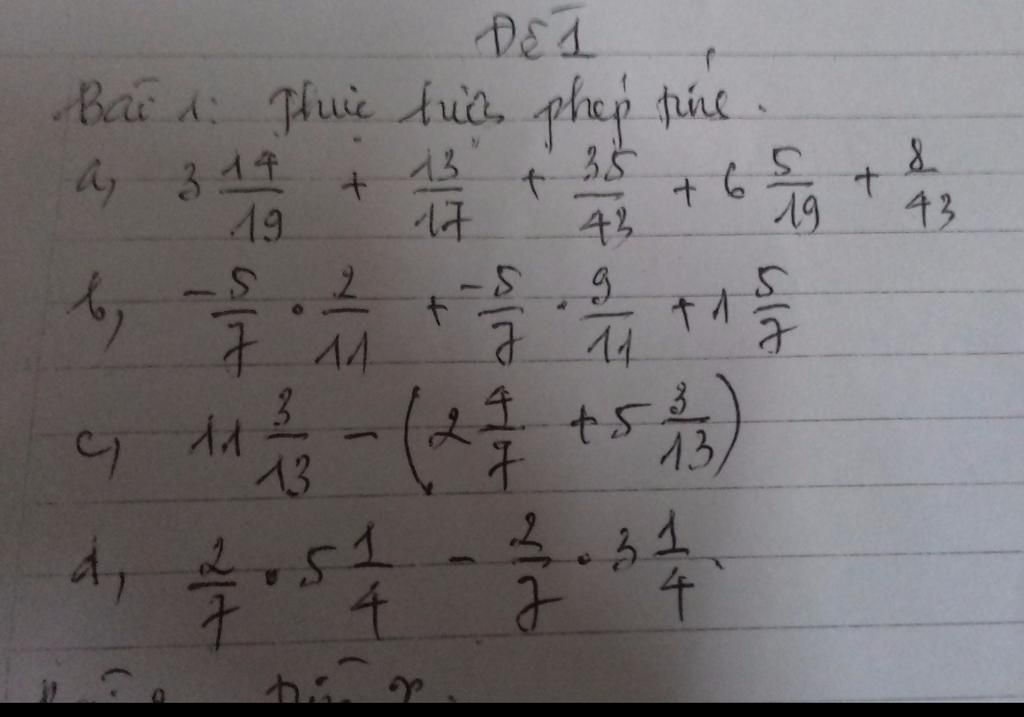 ĐỀ 1
Bài 1: Thực hiện phép tính.
a, 3 14/19 + 13/17 + 35/43 + 6 5/19 + 8/43
b, -5/7 . 2/11 + -5/7 . 9/11 + 1 5/7
c, 11 3/13 - (2 4/7 + 5 3/13)
d, 2/7 . 5 1/4 - 2/7 . 3 1/4